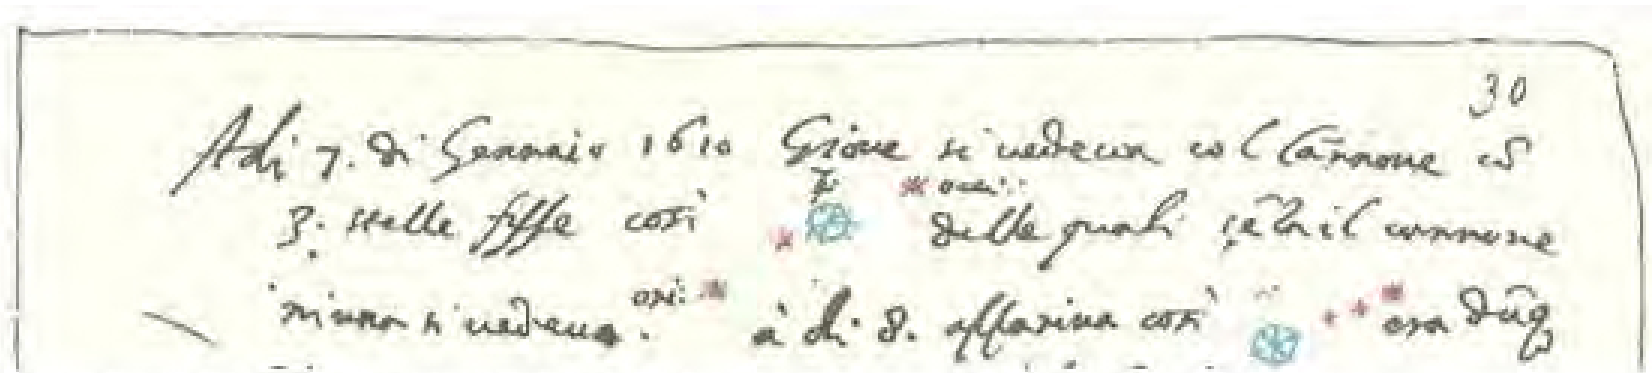 30
Adi 7. di Gennaio 1610 Giove si vedeva col Cannone cō
3. stelle fisse così delle quali sēza il cannone
niuna si vedeva. à dì 8. appariva così era dūq